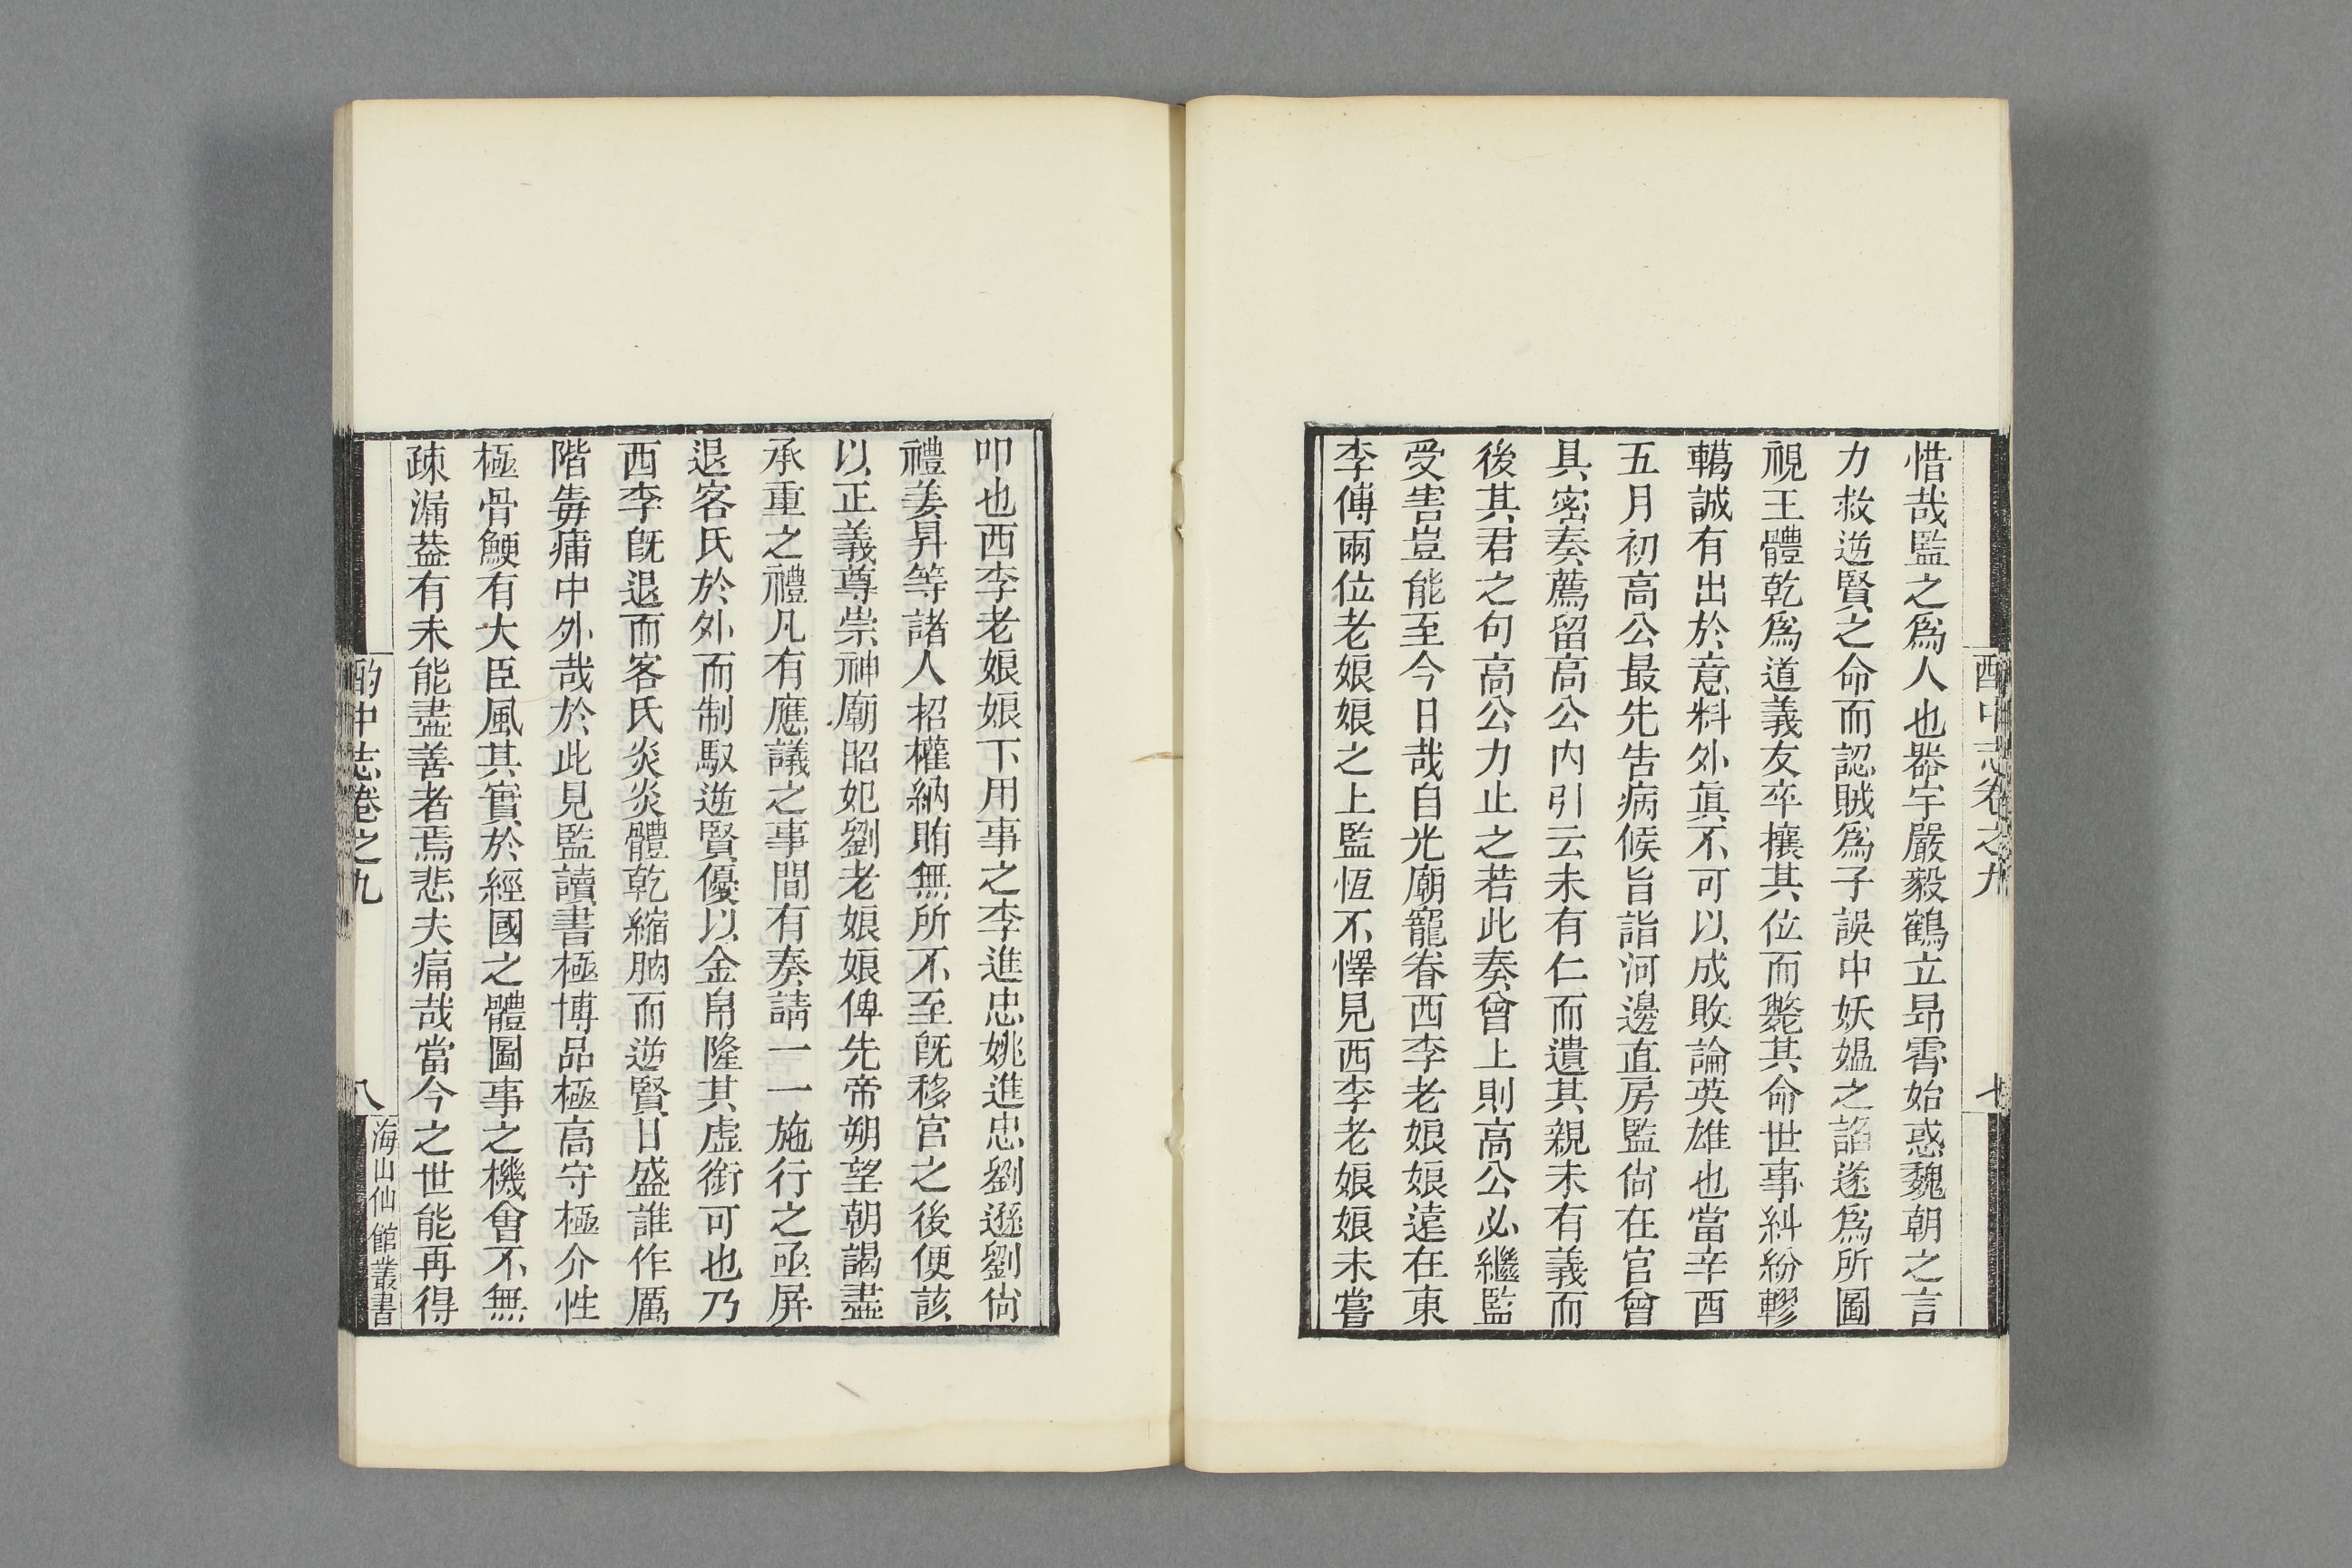 酌中志卷之九
七
惜哉監之爲人也器宇嚴毅鶴立昂霄始惑魏朝之言
力救逆賢之命而認賊爲子誤中妖媼之諂遂爲所圖
視王體乾爲道義友卒攘其位而斃其命世事糾紛轇
轕誠有出於意料外眞不可以成敗論英雄也當辛酉
五月初高公最先吿病候旨詣河邊直房監尙在官曾
具密奏薦留高公內引云未有仁而遺其親未有義而
後其君之句高公力止之若此奏曾上則高公必繼監
受害豈能至今日哉自光廟寵眷西李老娘娘遠在東
李傅兩位老娘娘之上監恆不懌見西李老娘娘未嘗
叩也西李老娘娘下用事之李進忠姚進忠劉遜劉尙
禮姜昇等諸人招權納賄無所不至旣移宮之後便該
以正義尊崇神廟昭妃劉老娘娘俾先帝朔望朝謁盡
承重之禮凡有應議之事間有奏請一一施行之亟屏
退客氏於外而制馭逆賢優以金帛隆其虛銜可也乃
西李旣退而客氏炎炎體乾縮朒而逆賢日盛誰作厲
階毒痡中外哉於此見監讀書極博品極高守極介性
極骨鯁有大臣風其實於經國之體圖事之機會不無
疎漏葢有未能盡善者焉悲夫痛哉當今之世能再得
酌中志卷之九
八
海山仙館叢書